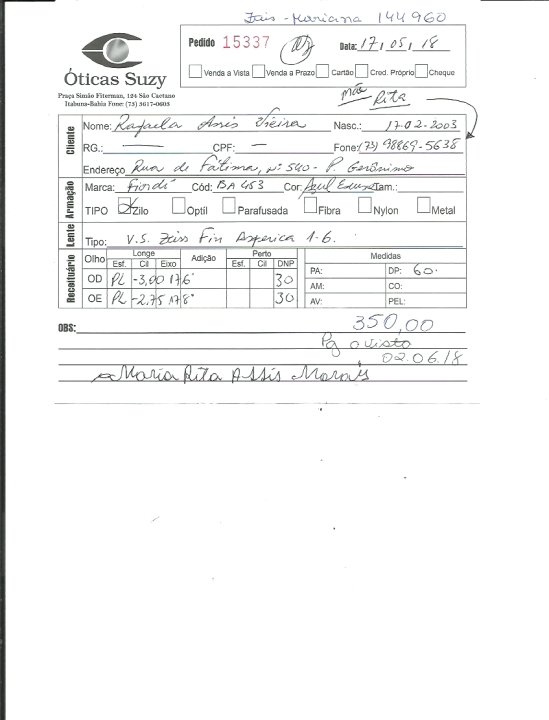 Mariana 144960
Óticas Suzy
Praça Simão Fiterman, 124 São Caetano
Itabuna-Bahia Fone: (73) 3617-0603
Pedido 15337 Data: 17, 05, 18
Venda a Vista Venda a Prazo Cartão Cred. Próprio Cheque
mãe Rita
Cliente
Nome: Rafaela Assis Vieira Nasc.: 17-02-2003
RG.: — CPF: — Fone: (73) 98869-5638
Endereço Rua de Fátima, nº 540 - P. Gerônimo
Armação
Marca: Fiordi Cód: BA 453 Cor: Azul Tam.:
TIPO Zilo Optil Parafusada Fibra Nylon Metal
Lente
Tipo: V.S. Zeiss Fin Asferica 1-6.
Receituário
Olho Longe Adição Perto Medidas
Esf. Cil Eixo Esf. Cil DNP PA: DP: 60.
OD PL -3,00 176° 30 AM: CO:
OE PL -2,75 178° 30 AV: PEL:
OBS: 350,00
Pg a vista
02.06.18
Maria Rita Assis Morais